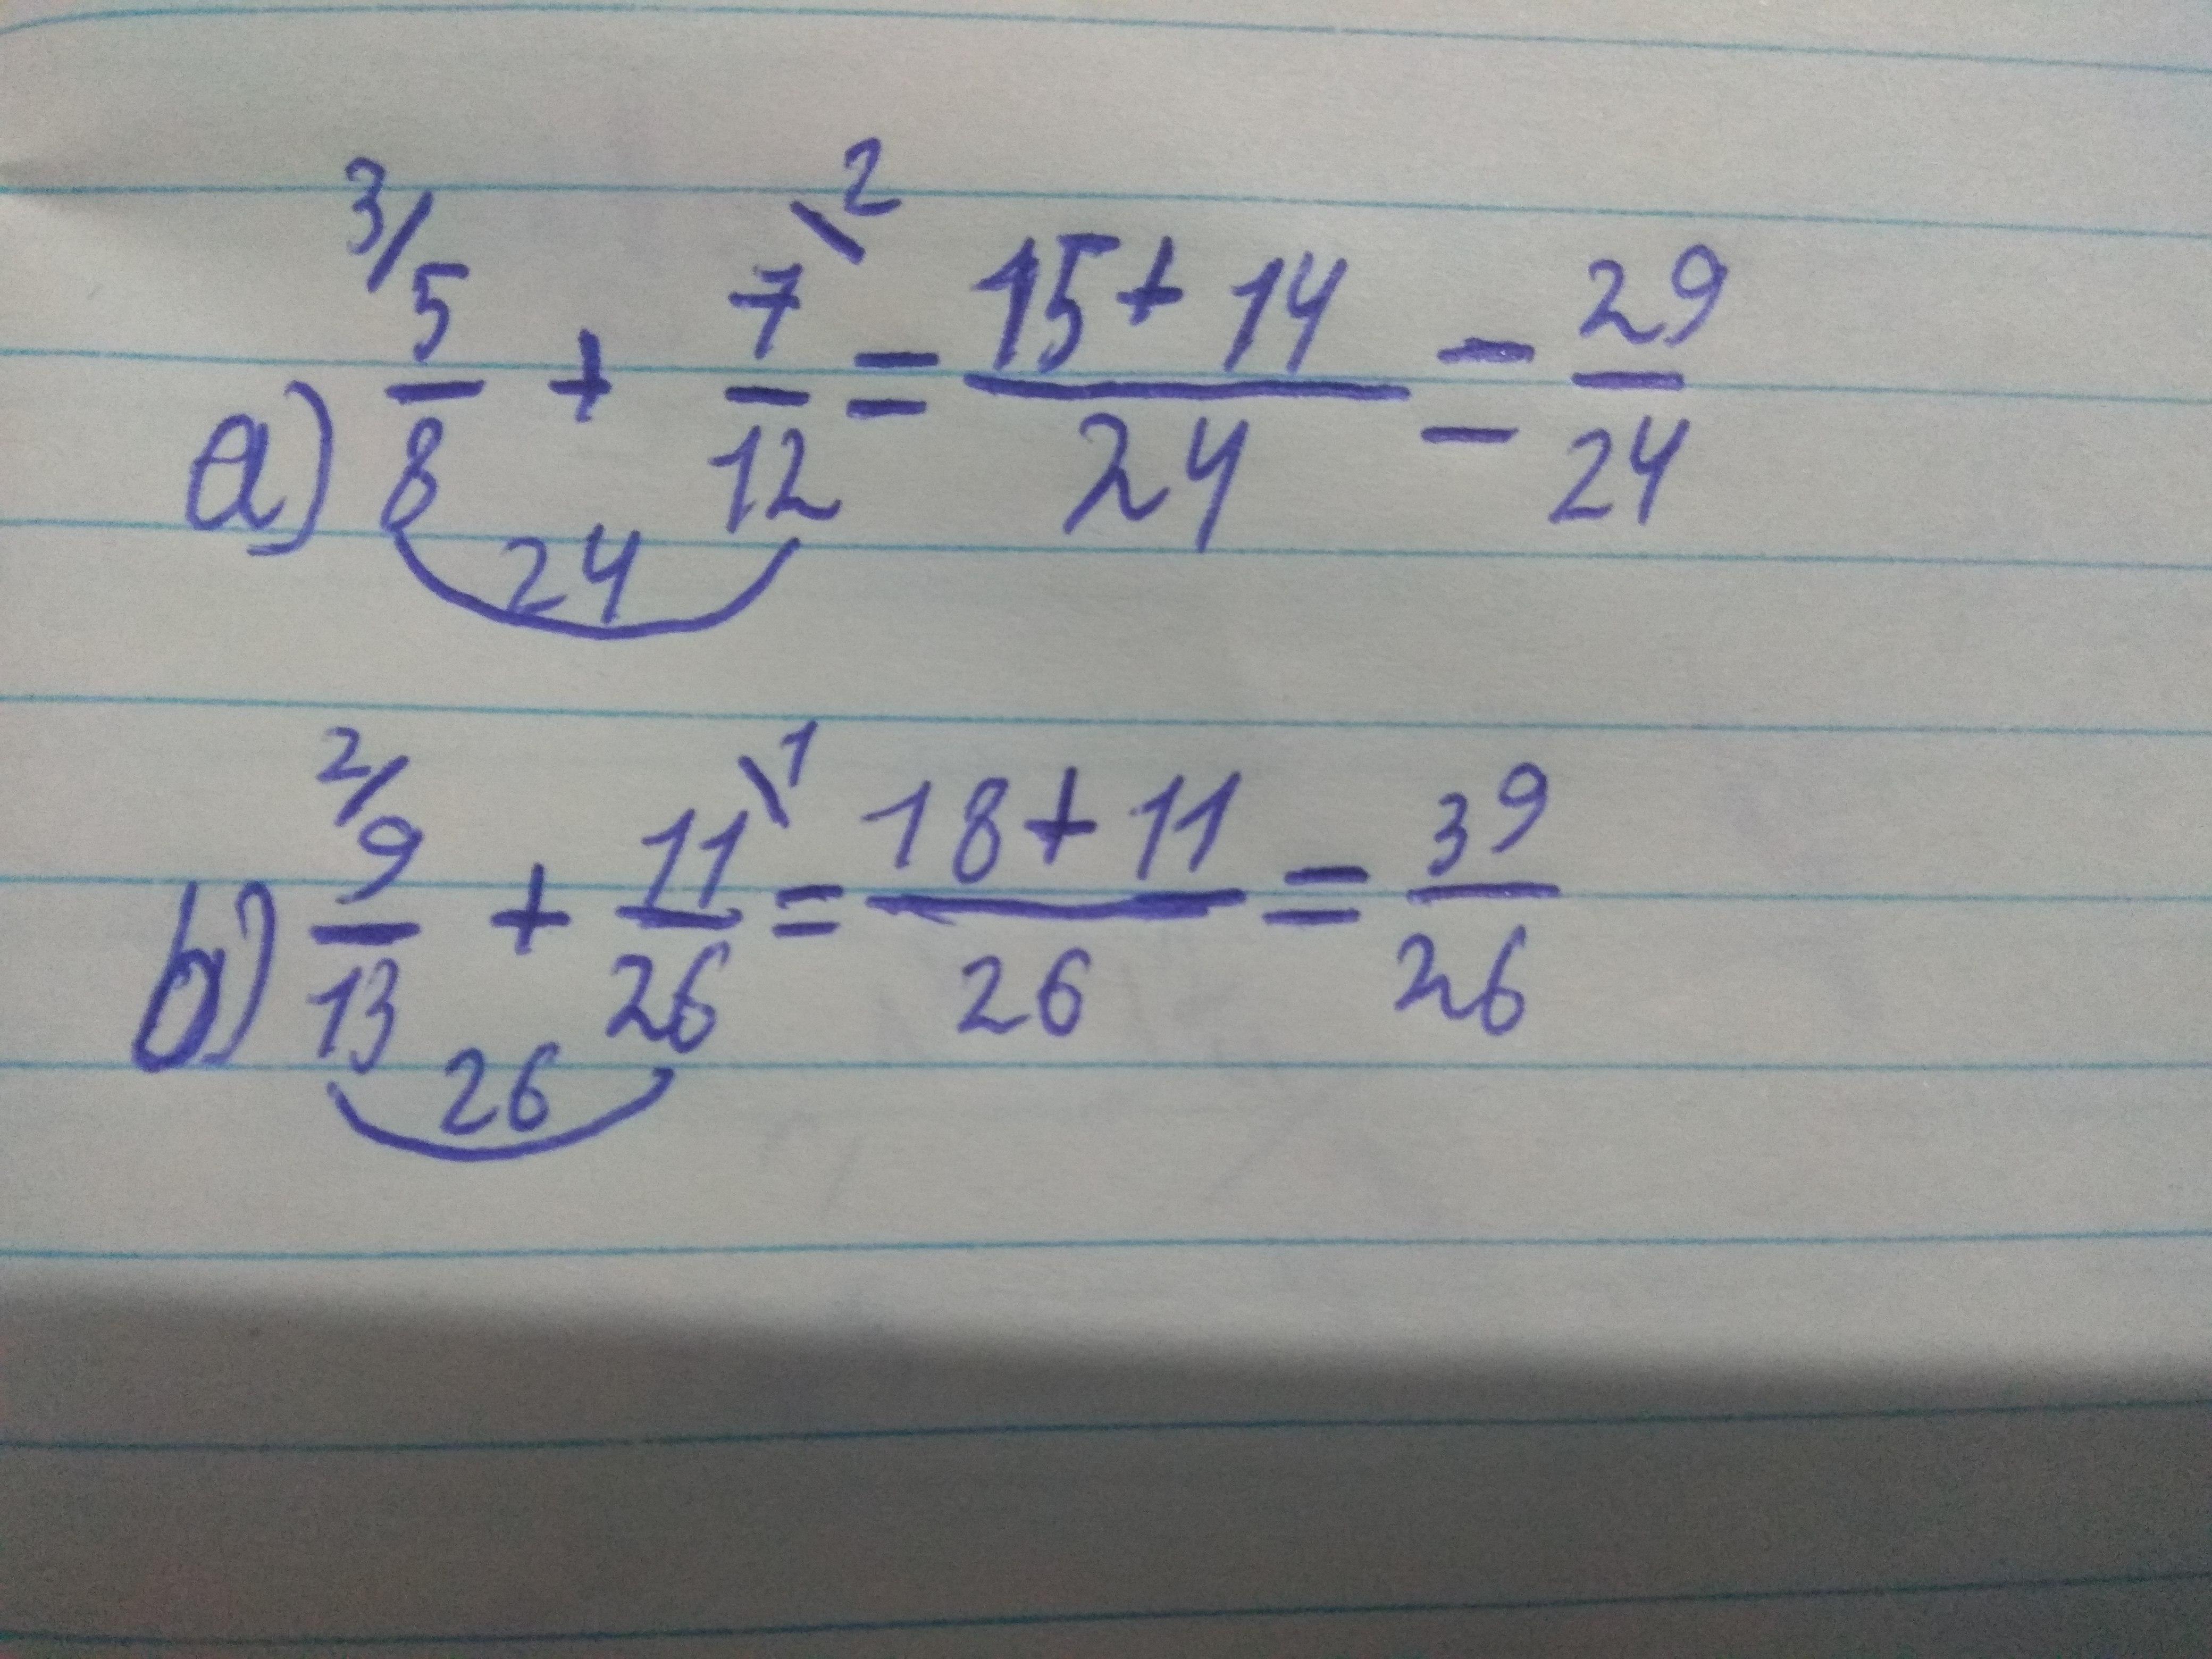 3/ \2
a) 5/8 + 7/12 = 15+14/24 = 29/24
24
2/ \1
b) 9/13 + 11/26 = 18+11/26 = 39/26
26